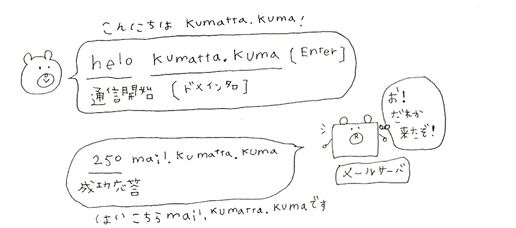 こんにちは kumatta.kuma!
helo kumatta.kuma [Enter]
通信開始 [ドメイン名]
お!
だれか
来たぞ!
250 mail.kumatta.kuma
成功応答
メールサーバ
はい こちら mail.kumatta.kuma です